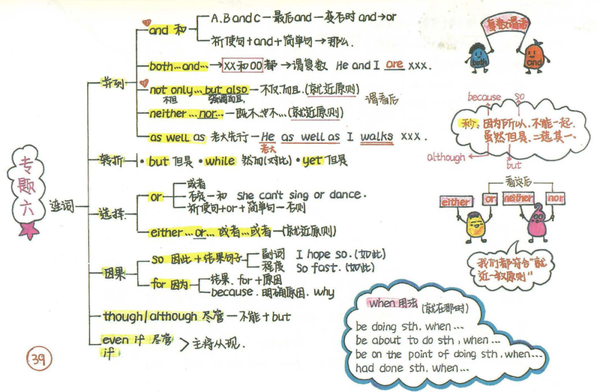 专题六
连词
并列
and 和
A. B and C — 最后and — 变否时 and→or
祈使句+and+简单句→那么.
both...and... → xx和oo都→谓复数 He and I are xxx.
not only...but also — 不仅而且.(就近原则)
不但 强调而且.
谓看后
neither...nor... — 既不…也不…(就近原则)
as well as 老大先行 — He as well as I walks xxx.
老大
转折
·but 但是 ·while 然而(对比) ·yet 但是
选择
or
或者
否 — 和 she can't sing or dance.
祈使句+or+简单句 — 否则
either...or... 或者...或者 — (就近原则)
因果
so 因此+结果句子
副词 I hope so. (如此)
程度 So fast. (如此)
for 因为
结果. for+原因
because. 明确原因. why
though/although 尽管 — 不能+but
even if 尽管
if
主将从现.
39
复数谓语
both
and
because so
秒: 因为所以, 不能一起.
虽然但是. 二选其一.
although
but
看最后
either or neither nor
我们都符合"就近一致原则"
when 用法 (就在那时)
be doing sth. when...
be about to do sth, when...
be on the point of doing sth, when...
had done sth. when...